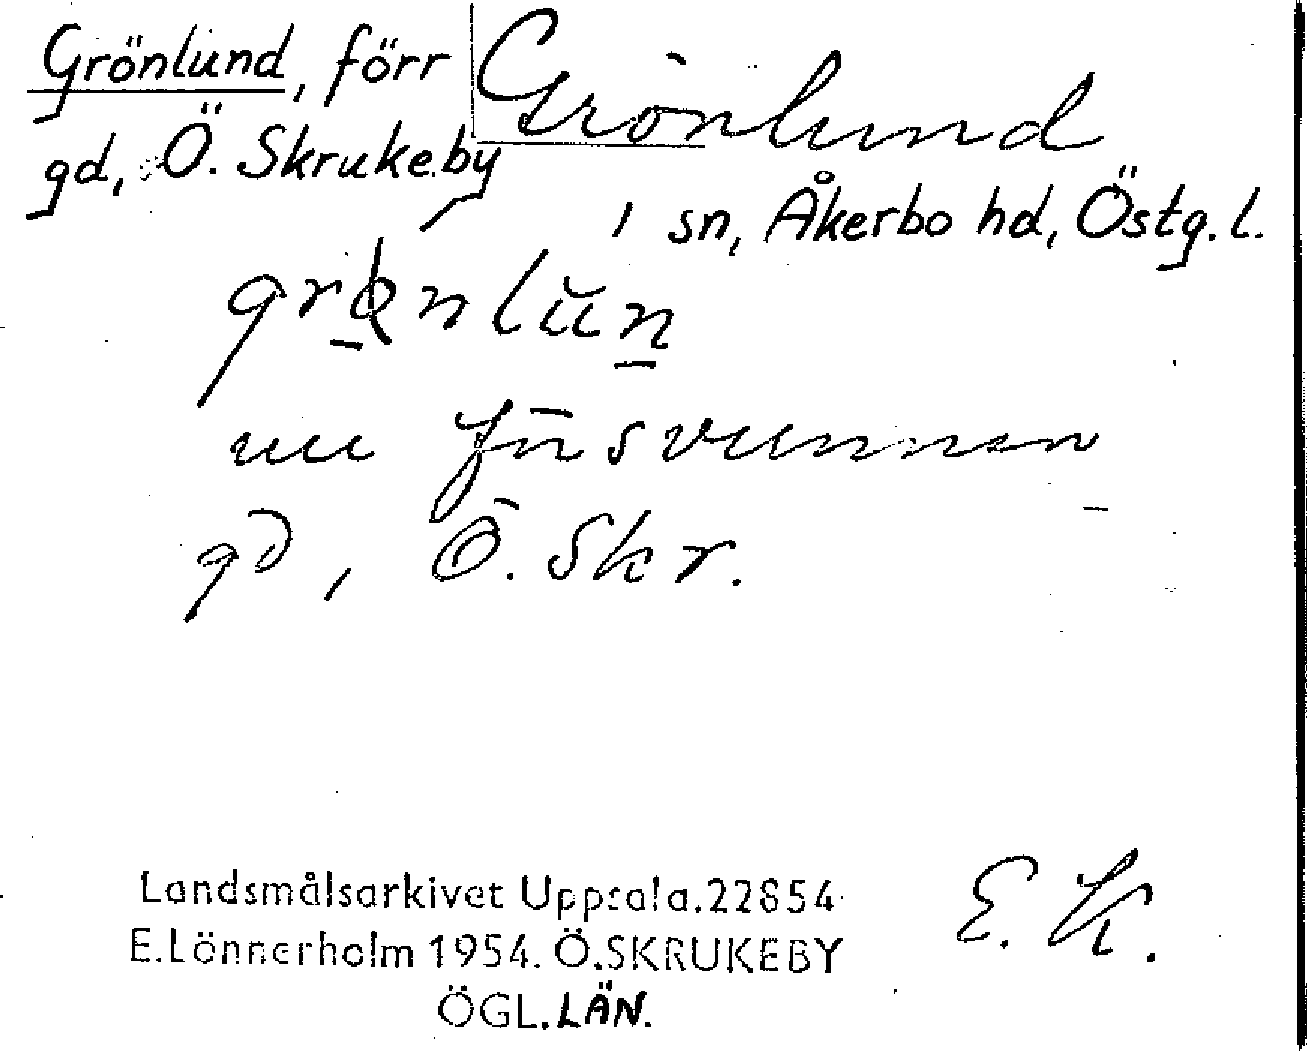 Grönlund, förr
gd, Ö. Skrukeby
Grönlund
sn, Åkerbo hd, Östg. l.
nu försvunnen
gd, Ö. Skr.
Landsmålsarkivet Uppsala.22854
E.Lönnerholm 1954. Ö.SKRUKEBY
ÖGL.LÄN.
E. K.